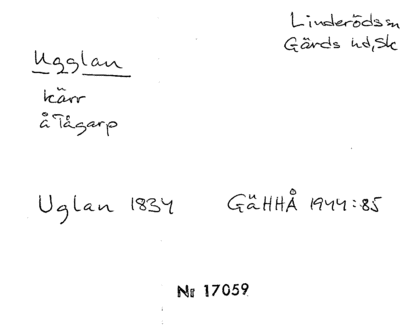 Linderöds sn
Gärds hd, Sk
Ugglan
kärr
å Tågarp
Uglan 1834 GäHHÅ 1944:85
Nr 17059